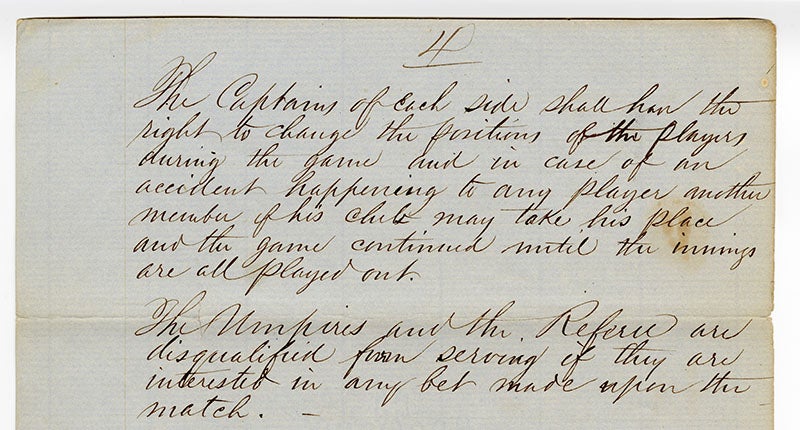 4
The Captains of each side shall have the
right to change the positions of the players
during the game and in case of an
accident happening to any player another
member of his club may take his place
and the game continued until the innings
are all played out.
The Umpires and the Referee are
disqualified from serving if they are
interested in any bet made upon the
match. —